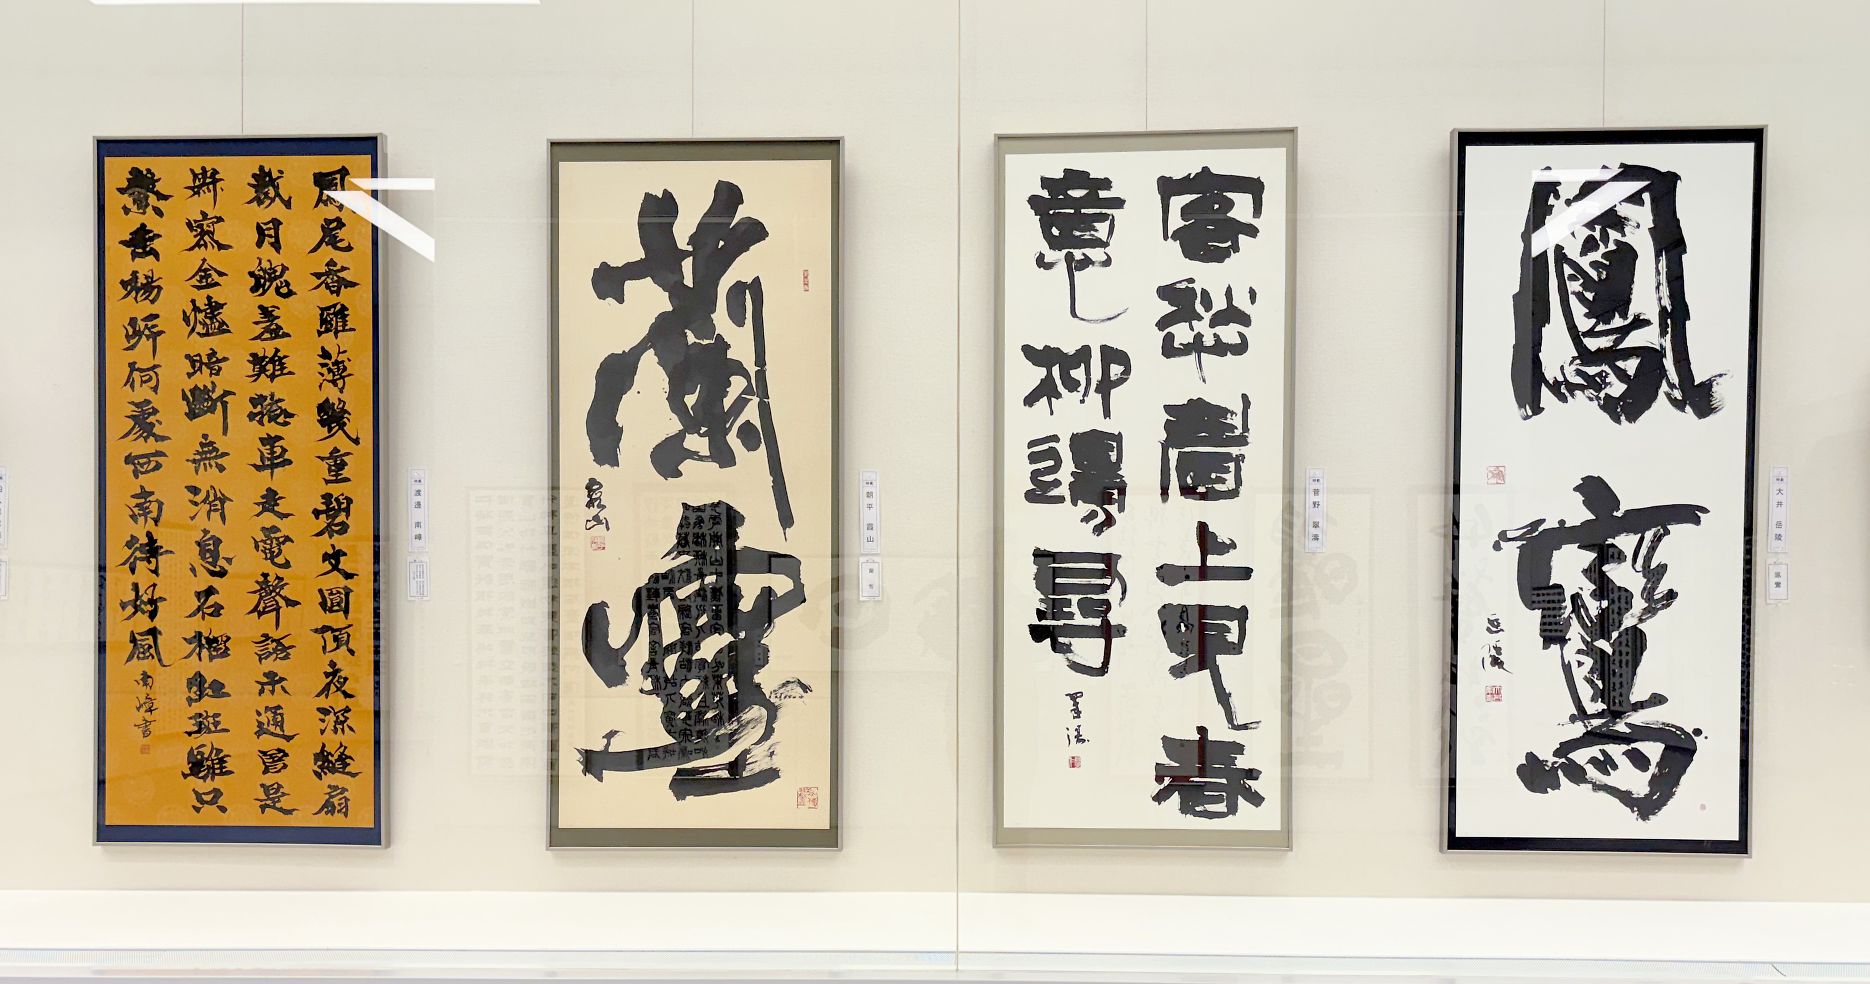 鳳鸞
岳陵
大井 岳陵
鳳鸞
客愁上見春
意柳尋
翠濤
菅野 翠濤
蘭
霞山
朝平 霞山
鳳尾香羅薄幾重碧文圓頂夜深縫扇
裁月魄羞難掩車走雷聲語未通曾是
寂寥金燼暗斷無消息石榴紅斑騅只
繫垂楊岸何處西南待好風
南嶂書
渡邊 南嶂